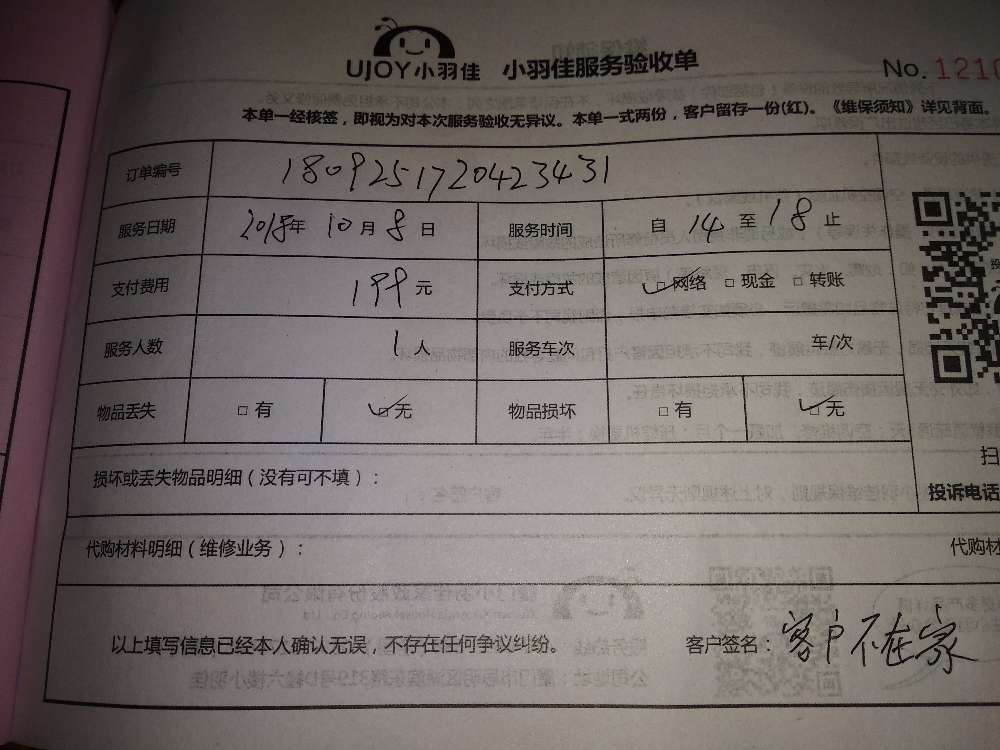 UJOY小羽佳 小羽佳服务验收单 No.1210
本单一经核签，即视为对本次服务验收无异议。本单一式两份，客户留存一份(红)。《维保须知》详见背面。
订单编号 1809251720423431
服务日期 2018年 10月 8日 服务时间 自 14 至 18 止
支付费用 199元 支付方式 ☑网络 □现金 □转账
服务人数 1人 服务车次 车/次
物品丢失 □有 ☑无 物品损坏 □有 ☑无
损坏或丢失物品明细（没有可不填）：
扫
投诉电话
代购材料明细（维修业务）： 代购材
以上填写信息已经本人确认无误，不存在任何争议纠纷。 客户签名：客户不在家